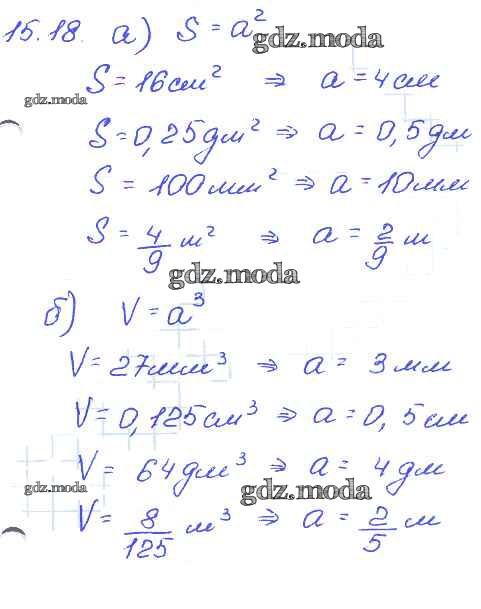 15.18. а) S = a²
gdz.moda
S = 16 см² ⇒ a = 4 см
gdz.moda
S = 0,25 дм² ⇒ a = 0,5 дм
S = 100 мм² ⇒ a = 10 мм
S = 4/9 м² ⇒ a = 2/9 м
gdz.moda
б) V = a³
V = 27 мм³ ⇒ a = 3 мм
V = 0,125 см³ ⇒ a = 0,5 см
V = 64 дм³ ⇒ a = 4 дм
gdz.moda
gdz.moda
V = 8/125 м³ ⇒ a = 2/5 м